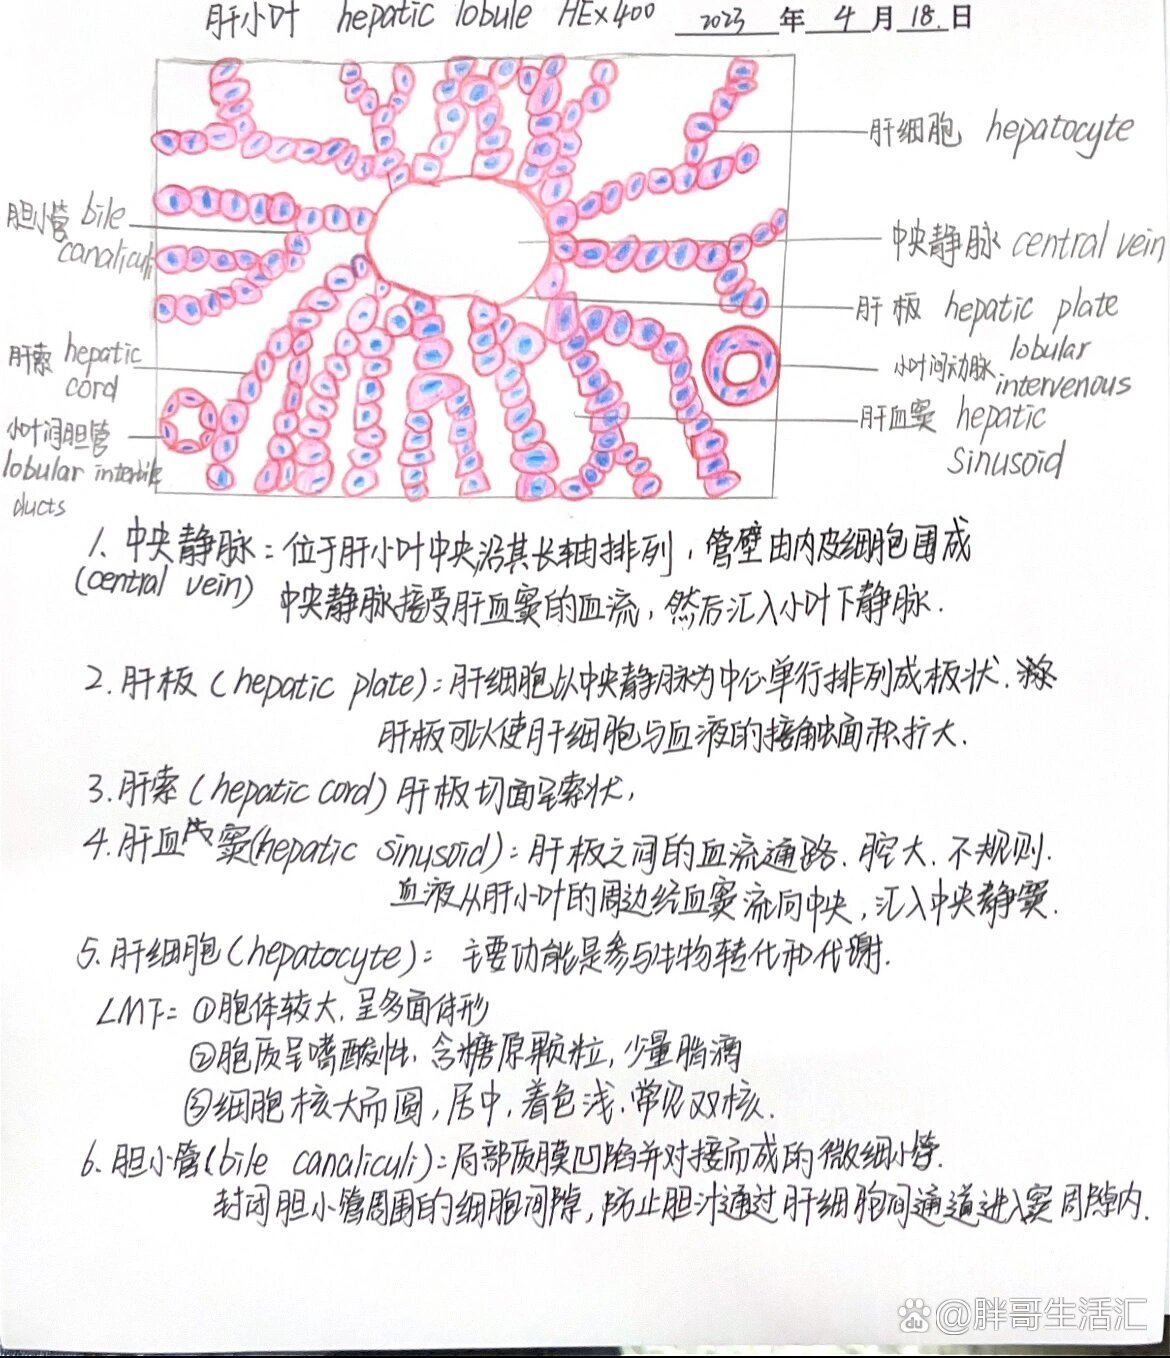 肝小叶 hepatic lobule HE×400 2023 年 4 月 18. 日
肝细胞 hepatocyte
胆小管 bile
canaliculi
中央静脉 central vein
肝板 hepatic plate
肝索 hepatic
cord
小叶间动脉 lobular
intervenous
小叶间胆管
lobular interbile
ducts
肝血窦 hepatic
sinusoid
1. 中央静脉：位于肝小叶中央,沿其长轴排列，管壁由内皮细胞围成
(central vein) 中央静脉接受肝血窦的血流，然后汇入小叶下静脉.
2. 肝板 (hepatic plate)：肝细胞以中央静脉为中心单行排列成板状.
肝板可以使肝细胞与血液的接触面积扩大.
3. 肝索 (hepatic cord) 肝板切面呈索状,
4. 肝血窦(hepatic sinusoid)：肝板之间的血流通路. 腔大. 不规则.
血液从肝小叶的周边经血窦流向中央，汇入中央静窦.
5. 肝细胞 (hepatocyte)： 主要功能是参与生物转化和代谢.
LM下= ①胞体较大. 呈多面体形
②胞质呈嗜酸性. 含糖原颗粒, 少量脂滴
③细胞核大而圆，居中，着色浅. 常见双核.
6. 胆小管(bile canaliculi)：局部质膜凹陷并对接而成的微细小管.
封闭胆小管周围的细胞间隙，防止胆汁通过肝细胞间通道进入窦周隙内.
@胖哥生活汇